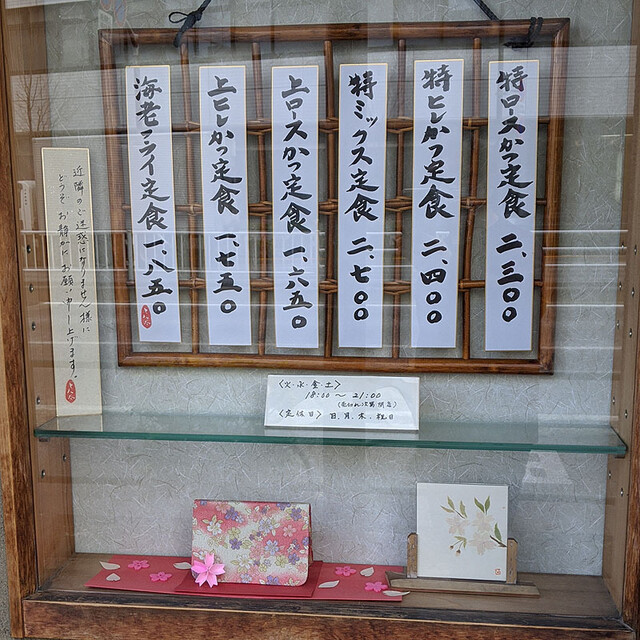 特ロースかつ定食 二、三〇〇
特ヒレかつ定食 二、四〇〇
特ミックス定食 二、七〇〇
上ロースかつ定食 一、六五〇
上ヒレかつ定食 一、七五〇
海老フライ定食 一、八五〇
近隣のご迷惑になりません様に
どうぞお静かにお願い申し上げます。
〈火・水・金・土〉
18:00 〜 21:00
(売切れ次第閉店)
〈定休日〉 日、月、木、祝日